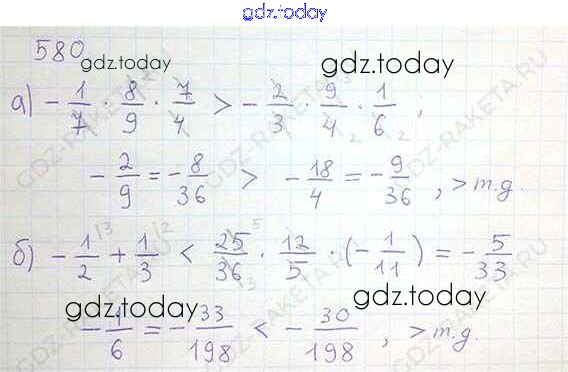 gdz.today
580
gdz.today
gdz.today
а) -1/7 · 8/9 · 7/4 > -2/3 · 9/4 · 1/6 ,
2 2
-2/9 = -8/36 > -18/4 = -9/36 , > т.д.
б) -1/2 |3 + 1/3 |2 < 25/36 · 12/5 · (-1/11) = -5/33
5 3
gdz.today
gdz.today
-1/6 = -33/198 < -30/198 , > т.д.
GDZ-RAKETA.RU